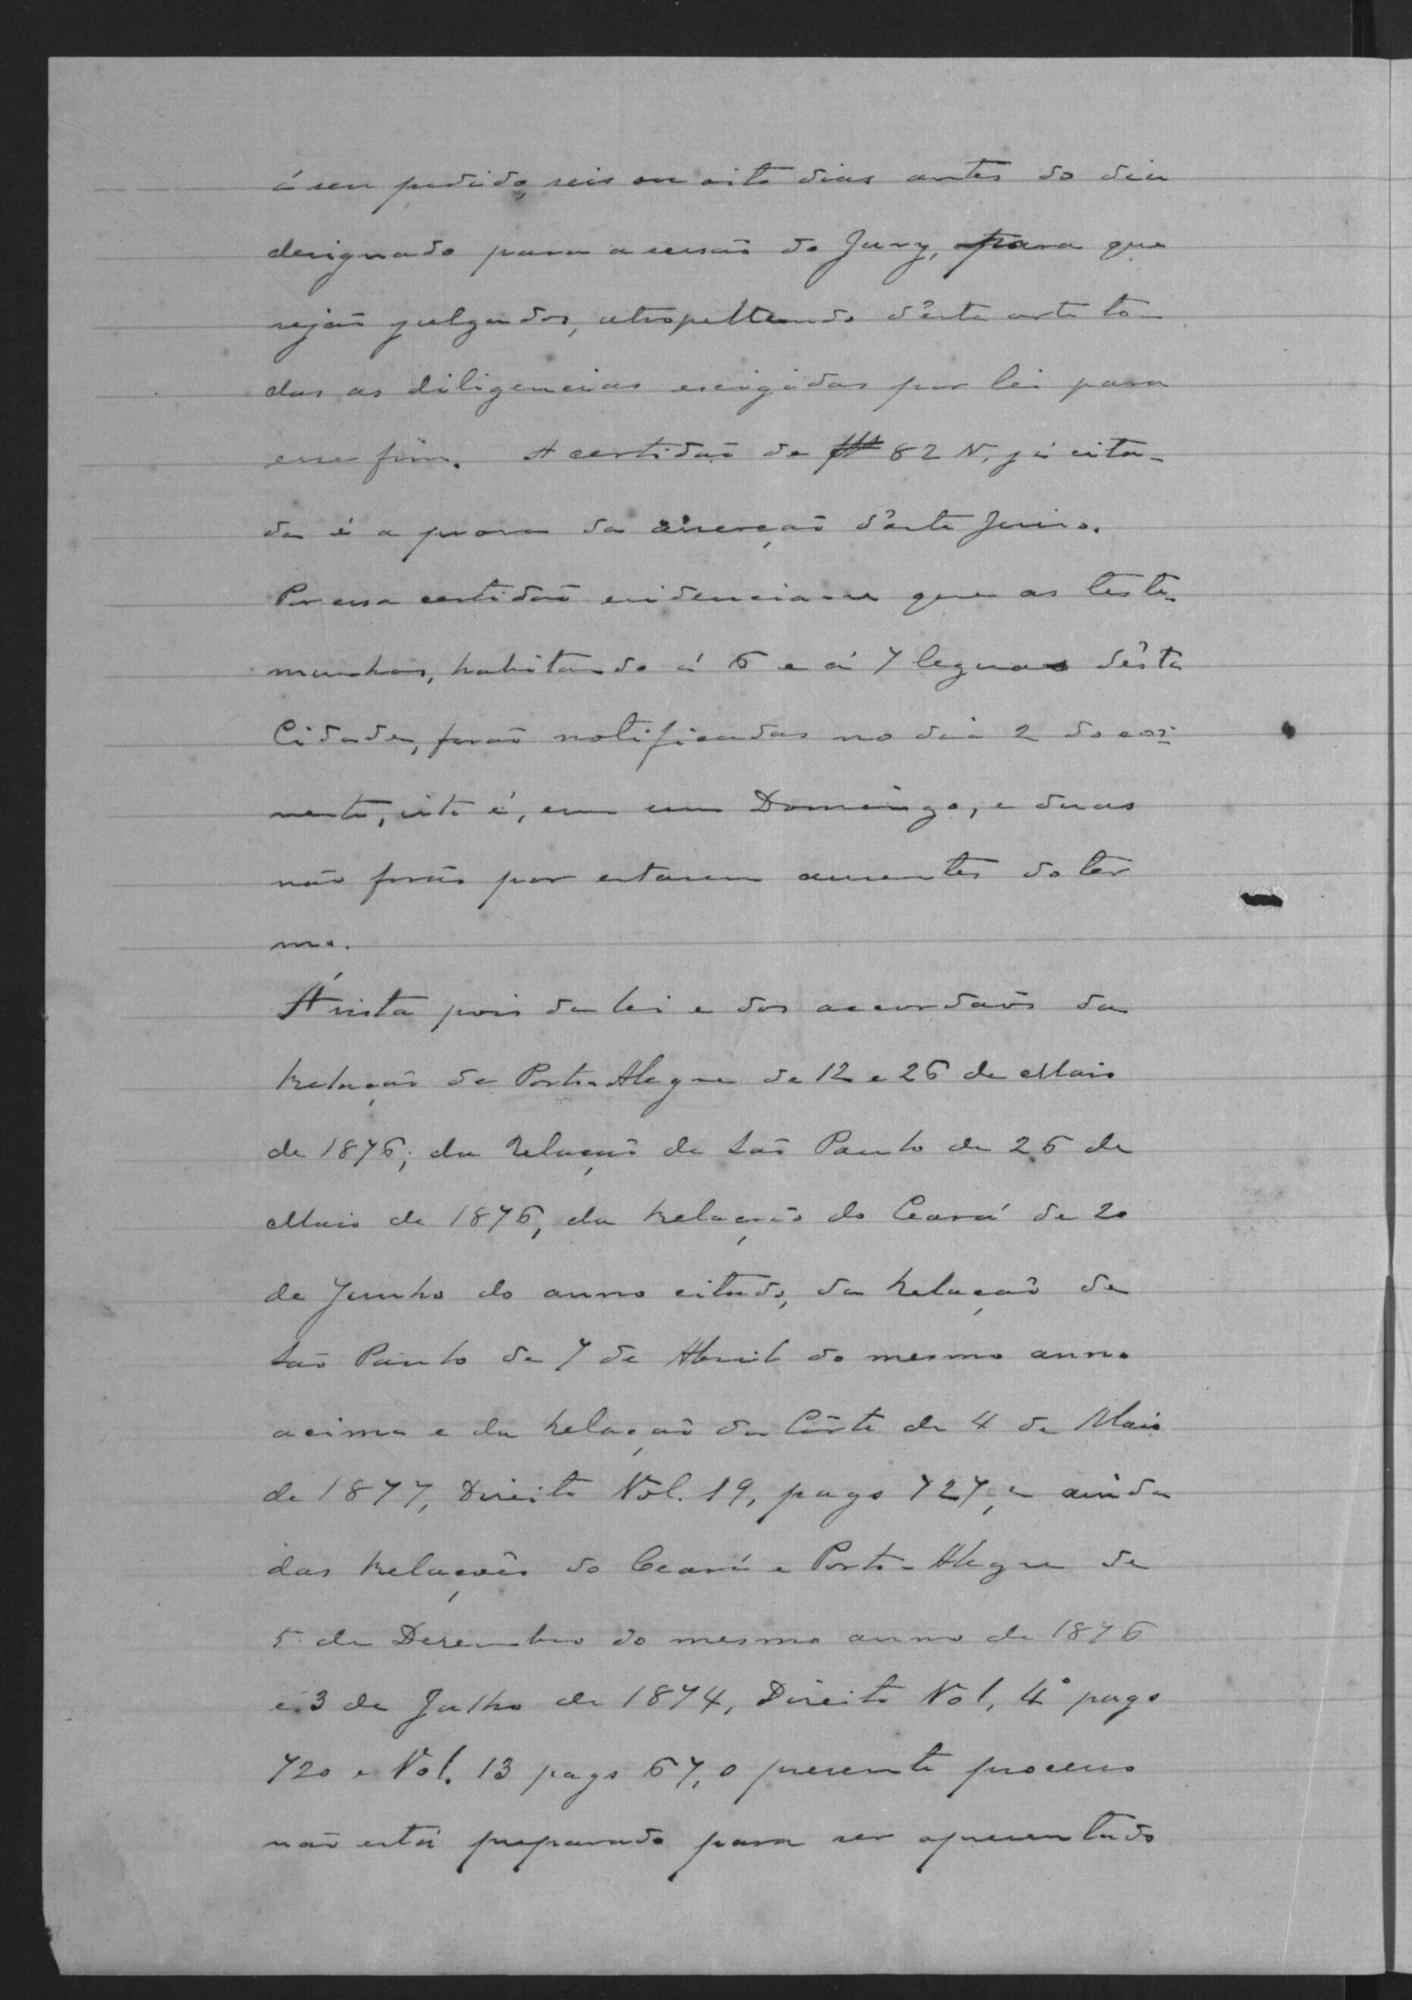 á seu pedido, seis ou oito dias antes do dia
designado para a sessão do Jury, para que
sejão julgados, atropellando d'esta arte to-
das as diligencias exigidas por lei para
esse fim. A certidão de 82 V. já cita-
da é a prova da asserção d'este Juizo.
Por essa certidão evidencia-se que as teste-
munhas, habitando á 6 e á 7 leguas d'esta
Cidade, forão notificadas no dia 2 do cor-
rente, isto é, em um Domingo, e duas
não forão por estarem ausentes do ter
mo.
Á vista pois da lei e dos accordãos da
Relação de Porto-Alegre de 12 e 26 de Maio
de 1876; da Relação de São Paulo de 26 de
Maio de 1876, da Relação do Ceará de 20
de Junho do anno citado, da Relação de
São Paulo de 7 de Abril do mesmo anno
acima e da Relação da Côrte de 4 de Maio
de 1877, Direito Vol. 19, pags 727, e ainda
das Relações do Ceará e Porto-Alegre de
5 de Dezembro do mesmo anno de 1876
e 3 de Julho de 1874, Direito Vol. 4º pags
720 e Vol. 13 pags 67, o presente processo
não está preparado para ser apresentado